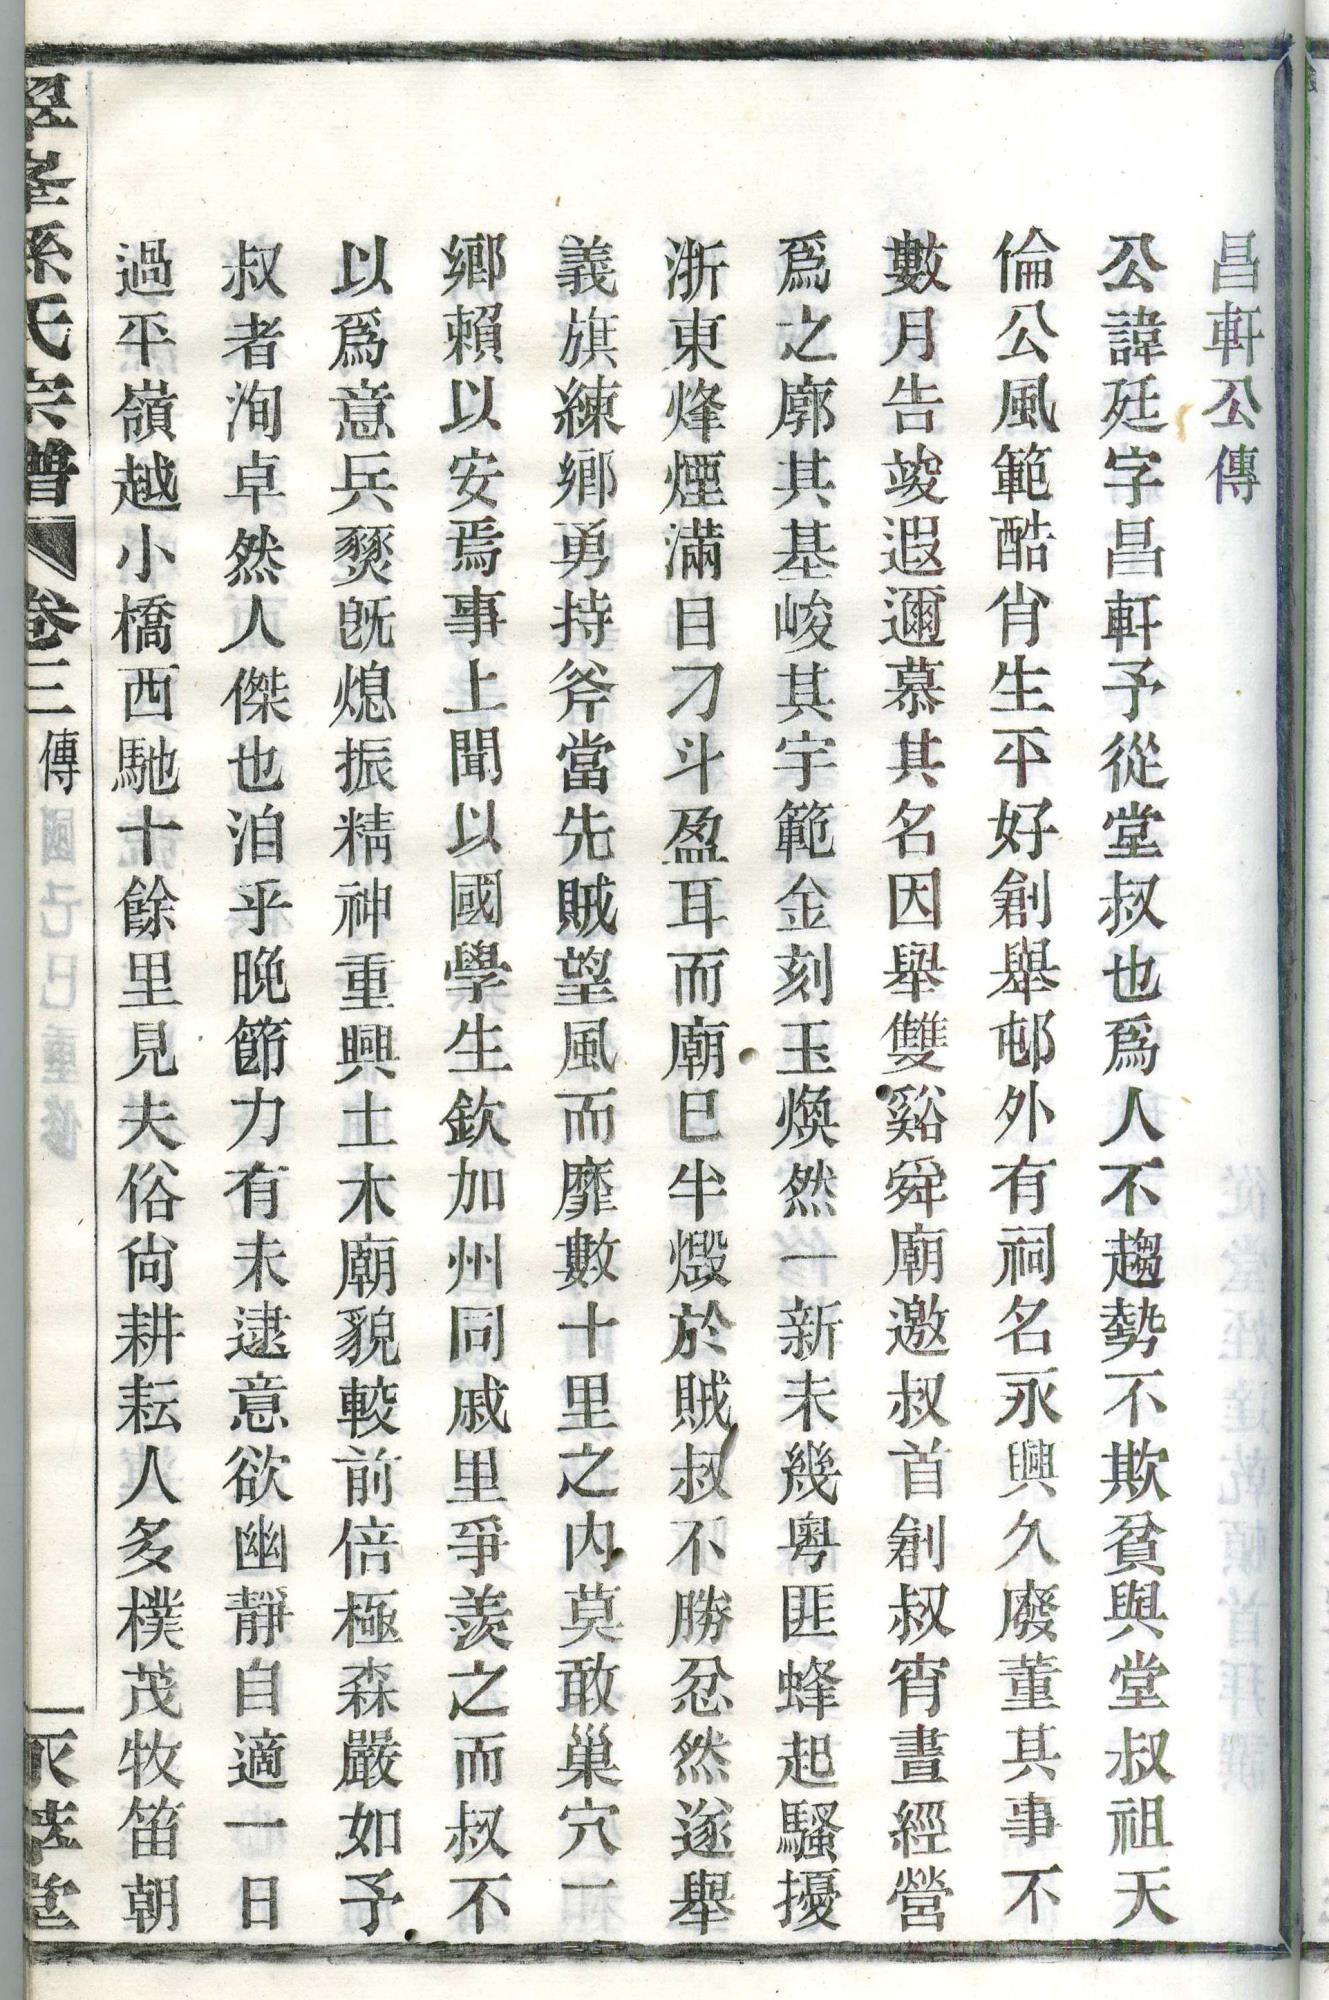 昌軒公傳
公諱廷字昌軒予從堂叔也爲人不趨勢不欺貧與堂叔祖天
倫公風範酷肖生平好創舉邨外有祠名永興久廢董其事不
數月告竣遐邇慕其名因舉雙谿舜廟邀叔首創叔宵晝經營
爲之廓其基峻其宇範金刻玉煥然一新未幾粵匪蜂起騷擾
浙東烽煙滿目刁斗盈耳而廟已半燬於賊叔不勝忿然遂舉
義旗練鄉勇持斧當先賊望風而靡數十里之内莫敢巢穴一
鄉賴以安焉事上聞以國學生欽加州同戚里爭羨之而叔不
以爲意兵燹旣熄振精神重興土木廟貌較前倍極森嚴如予
叔者洵卓然人傑也洎乎晚節力有未逮意欲幽靜自適一日
過平嶺越小橋西馳十餘里見夫俗尙耕耘人多樸茂牧笛朝
孫氏宗譜 卷三 傳